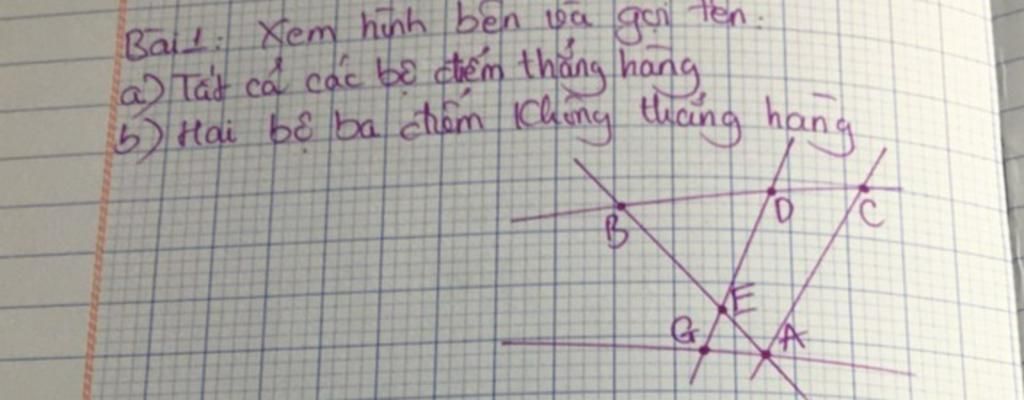 Bài 1: Xem hình bên và gọi tên:
a) Tất cả các bộ điểm thẳng hàng
b) Hai bộ ba điểm không thẳng hàng
B D C
E
G A